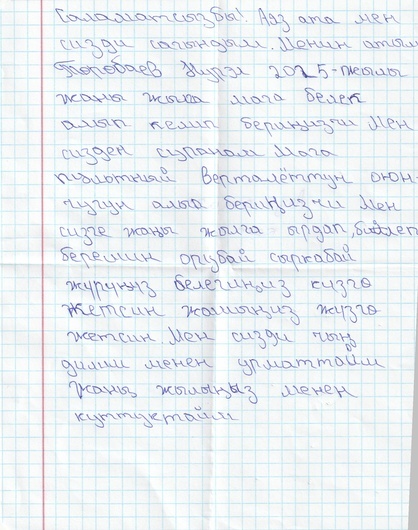 Саламатсызбы! Аяз ата мен
сизди сагындым. Менин атым
Торобаев Нурэл 2015-жылы
жаны жылга мага белек
алып келип бериңизчи Мен
сизден суранам Мага
пультный верталёттун оюн-
чугун алып бериңизчи Мен
сизге жаңы жылга ырдап, бийлеп
беремин орубай сыркабай
жүрүңүз белегиңиз күзгө
жетсин жашыңыз жүзгө
жетсин. Мен сизди чың
дилим менен урматтайм
Жаңы жылыңыз менен
куттуктайм